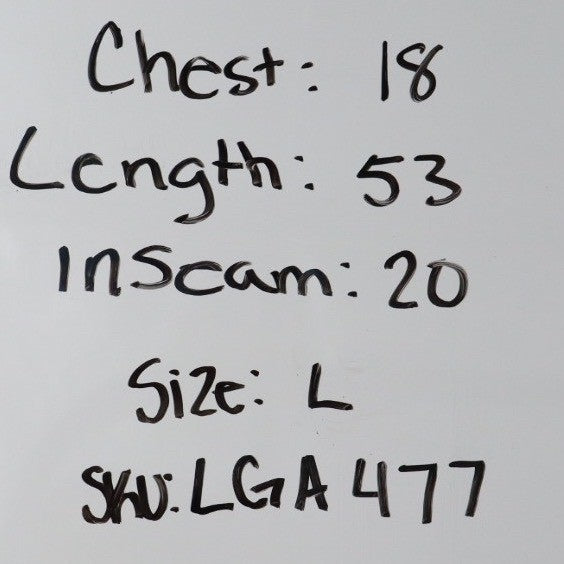 Chest: 18
Length: 53
Inseam: 20
Size: L
SKU: LGA477